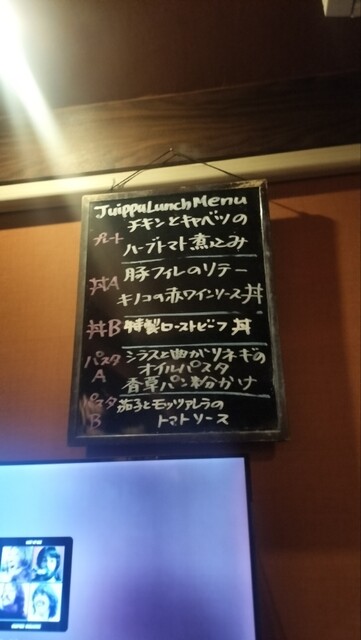 Juippa Lunch Menu
プレート チキンとキャベツの
ハーブトマト煮込み
丼A 豚フィレのソテー
キノコの赤ワインソース丼
丼B 特製ローストビーフ丼
パスタ シラスと曲がりネギの
A オイルパスタ
香草パン粉がけ
パスタ 茄子とモッツァレラの
B トマトソース